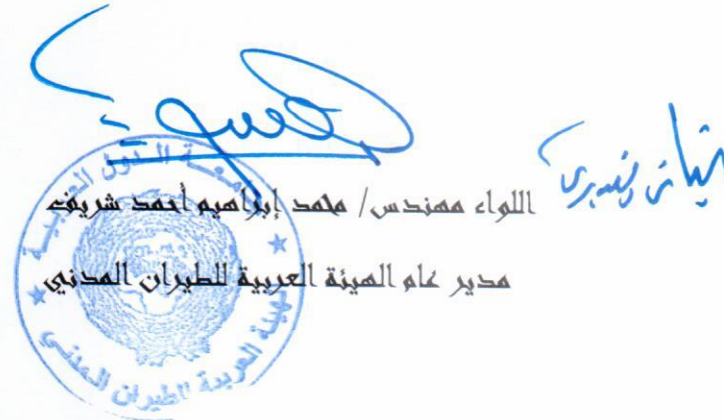 اللواء مهندس/ محمد إبراهيم أحمد شريف
مدير عام الهيئة العربية للطيران المدني
جامعة الدول العربية
الهيئة العربية للطيران المدني